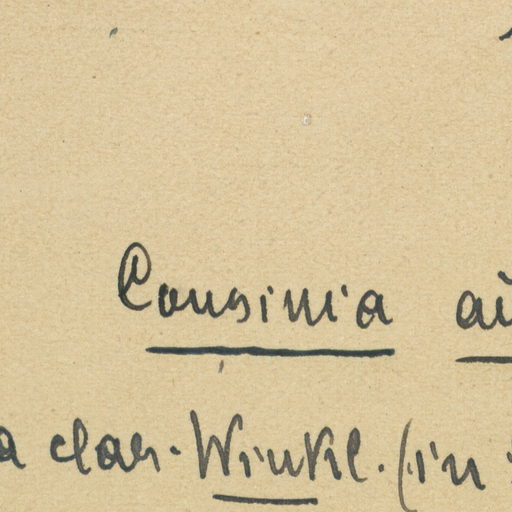 Cousinia ai
a clar. Winkl. (in